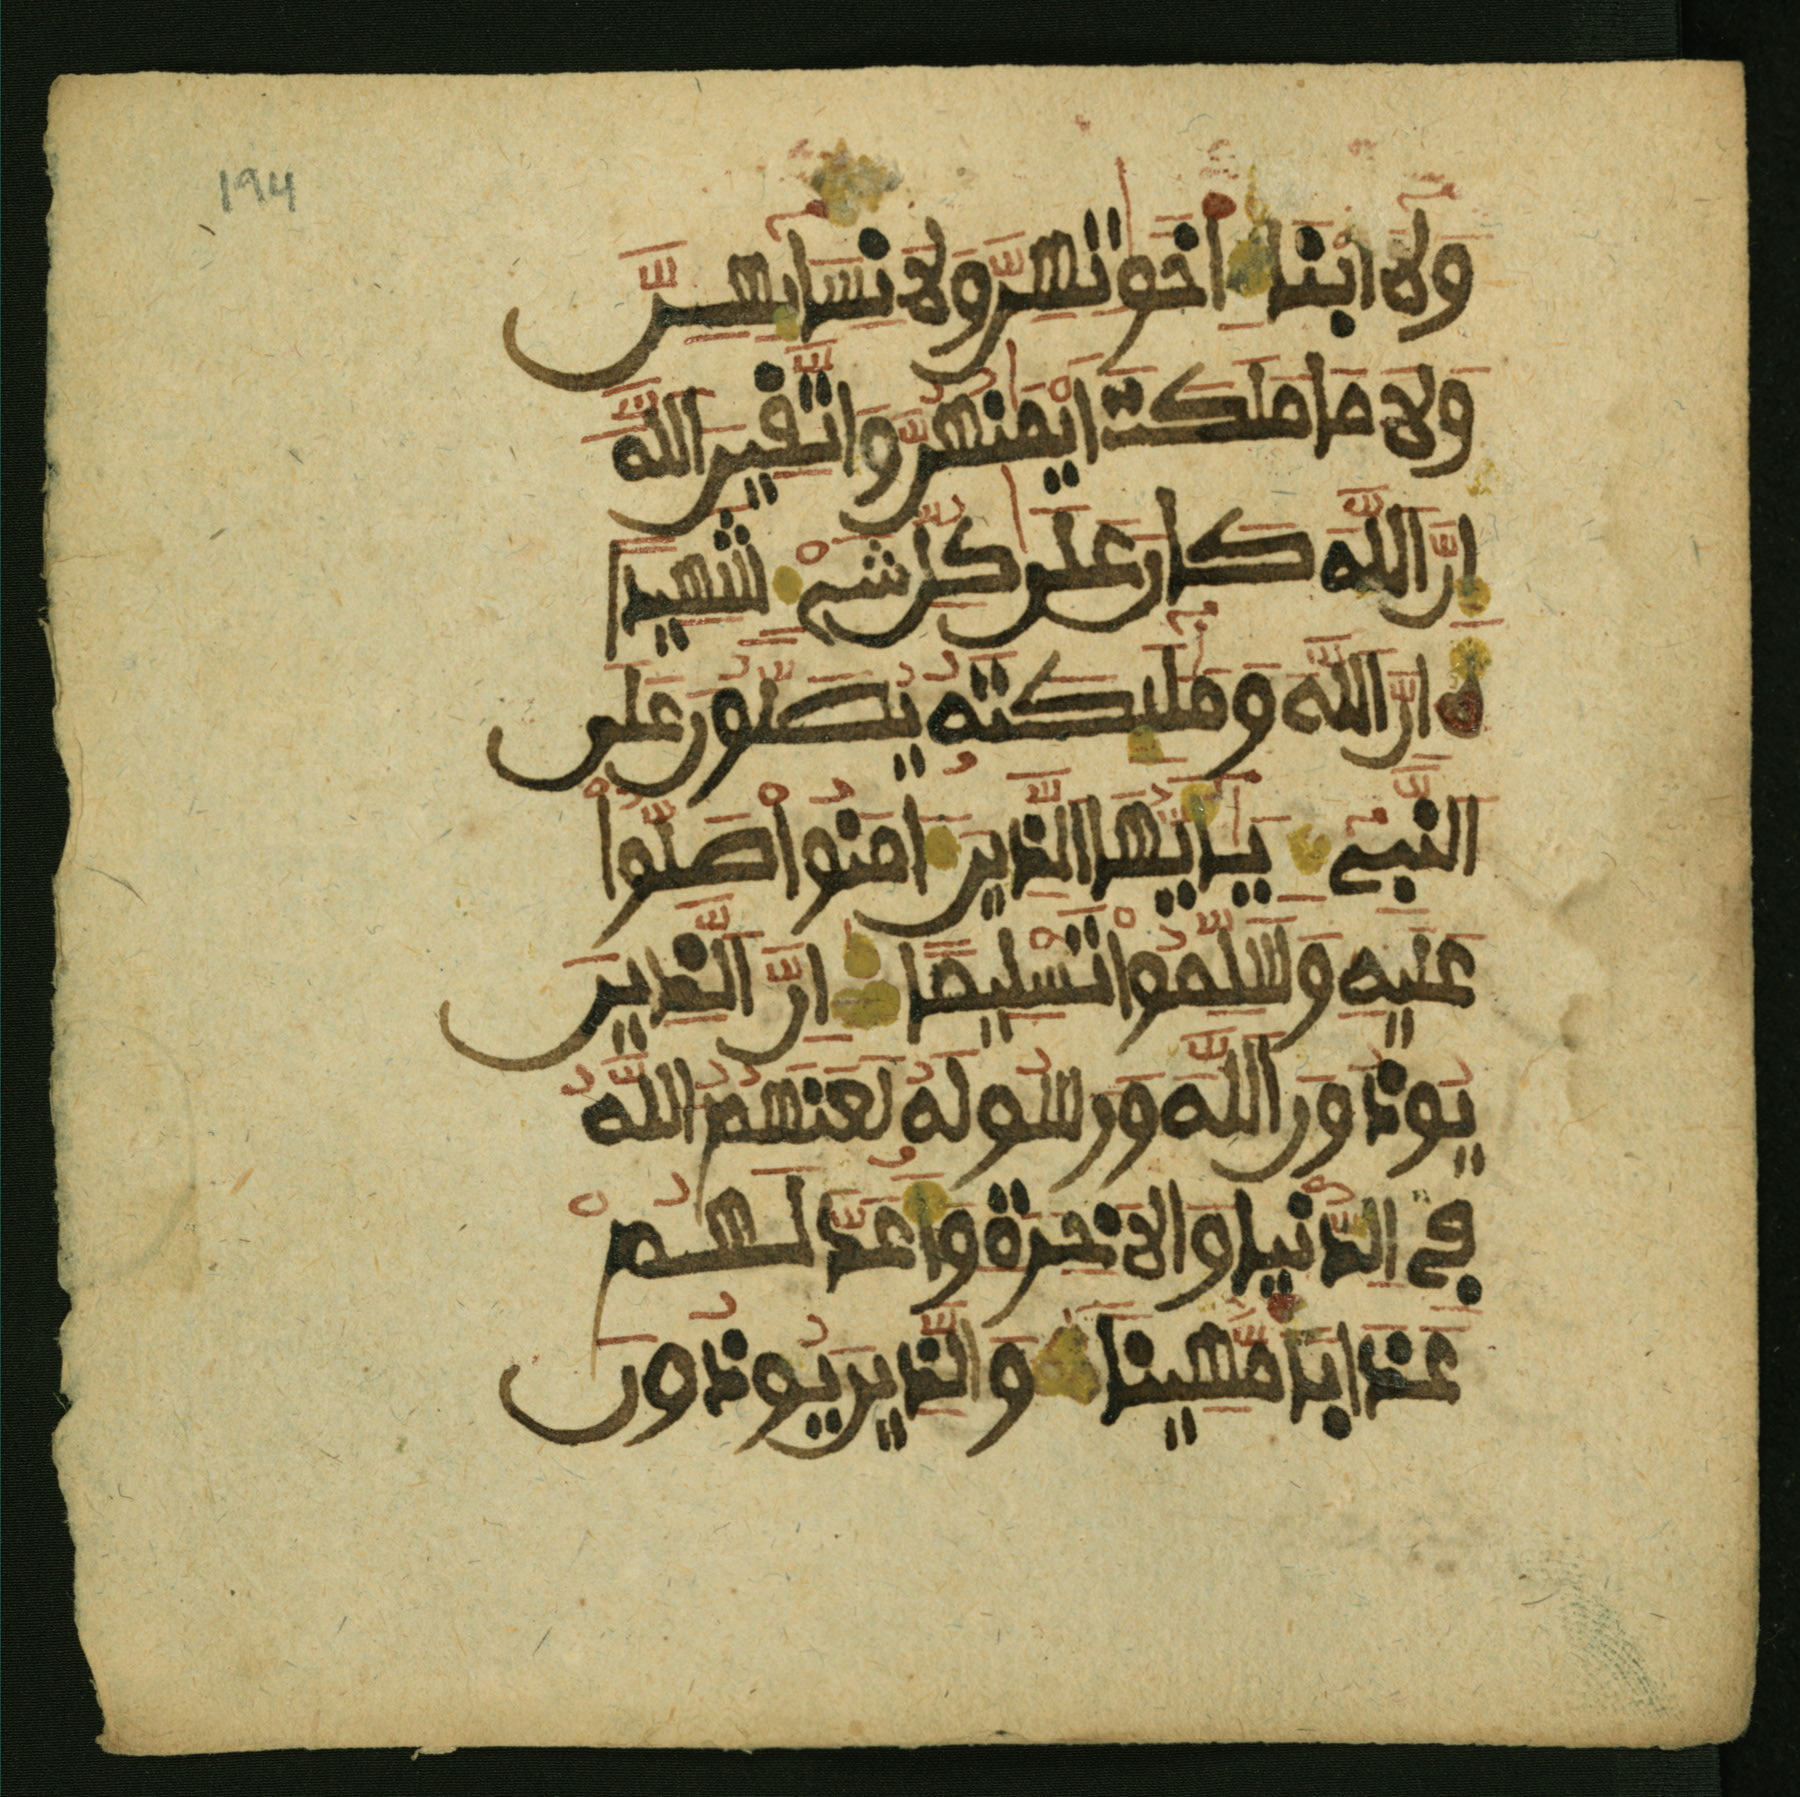 194
وَلَا أَبْنَاءِ أَخَوَاتِهِنَّ وَلَا نِسَائِهِنَّ
وَلَا مَا مَلَكَتْ أَيْمَٰنُهُنَّ وَاتَّقِينَ اللَّهَ
إِنَّ اللَّهَ كَانَ عَلَىٰ كُلِّ شَيْءٍ شَهِيدًا
إِنَّ اللَّهَ وَمَلَٰئِكَتَهُ يُصَلُّونَ عَلَى
النَّبِيءِ يَٰأَيُّهَا الَّذِينَ ءَامَنُوا صَلُّوا
عَلَيْهِ وَسَلِّمُوا تَسْلِيمًا إِنَّ الَّذِينَ
يُوذُونَ اللَّهَ وَرَسُولَهُ لَعَنَهُمُ اللَّهُ
فِي الدُّنْيَا وَالْأَخِرَةِ وَأَعَدَّ لَهُمْ
عَذَابًا مُّهِينًا وَالَّذِينَ يُوذُونَ